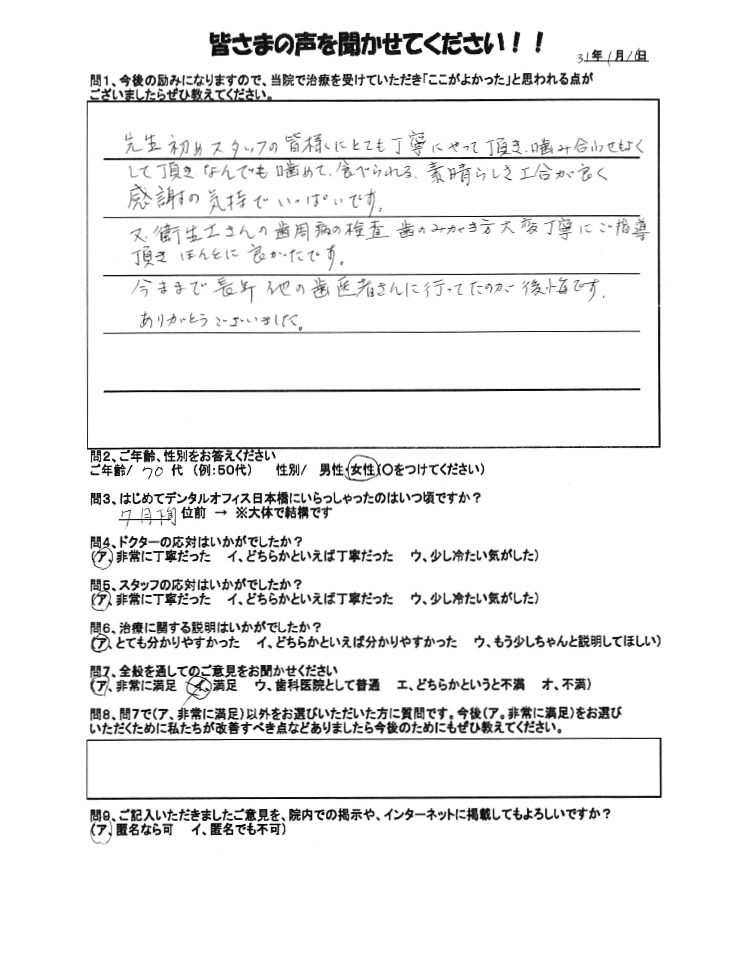 皆さまの声を聞かせてください！！
31年1月11日
問1、今後の励みになりますので、当院で治療を受けていただき「ここがよかった」と思われる点が
ございましたらぜひ教えてください。
先生初めスタッフの皆様にとても丁寧にやって頂き、噛み合わせもよく
して頂きなんでも噛めて、食べられる、素晴らしき工合が良く
感謝の気持でいっぱいです。
又、衛生士さんの歯周病の検査 歯のみがき方大変丁寧にご指導
頂きほんとに良かたです。
今まで長年他の歯医者さんに行ってたのが後悔です。
ありがとうございました。
問2、ご年齢、性別をお答えください
ご年齢/ 70 代 （例：50代） 性別/ 男性・女性（○をつけてください）
問3、はじめてデンタルオフィス日本橋にいらっしゃったのはいつ頃ですか？
7月 位前 → ※大体で結構です
問4、ドクターの応対はいかがでしたか？
（ア、非常に丁寧だった イ、どちらかといえば丁寧だった ウ、少し冷たい気がした）
問5、スタッフの応対はいかがでしたか？
（ア、非常に丁寧だった イ、どちらかといえば丁寧だった ウ、少し冷たい気がした）
問6、治療に関する説明はいかがでしたか？
（ア、とても分かりやすかった イ、どちらかといえば分かりやすかった ウ、もう少しちゃんと説明してほしい）
問7、全般を通してのご意見をお聞かせください
（ア、非常に満足 イ、満足 ウ、歯科医院として普通 エ、どちらかというと不満 オ、不満）
問8、問7で（ア、非常に満足）以外をお選びいただいた方に質問です。今後（ア。非常に満足）をお選び
いただくために私たちが改善すべき点などありましたら今後のためにもぜひ教えてください。
問9、ご記入いただきましたご意見を、院内での掲示や、インターネットに掲載してもよろしいですか？
（ア、匿名なら可 イ、匿名でも不可）